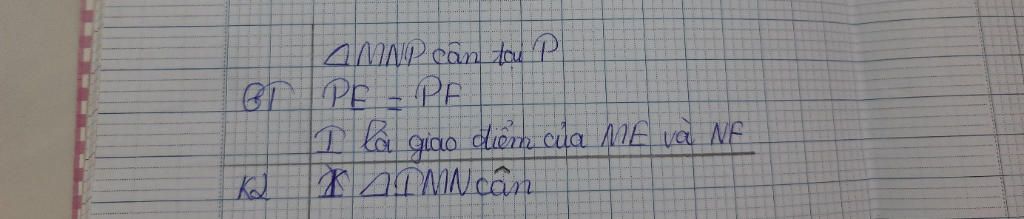 △MNP cân tại P
GT PE = PF
I là giao điểm của MF và NF
KL △IMN cân